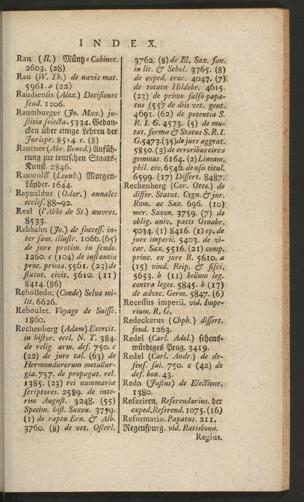 INDEX.
Rau (R.) Müntz-Cabinet.
2603. (28)
Rau (W. Th.) de navis mat.
5961. a (22)
Raudensis (Alex.) Decisiones
feud. 1206.
Raumburger (Jo. Max.) ju-
stitia selecta. 5334. Gedan-
cken über einige Lehren der
Jurispr. 8514. c. (8)
Rautner (Abr. Bened.) Einfüh-
rung zur teutschen Staats-
Kunst. 2846.
Rauwolff (Leonh.) Morgen-
länder. 1644.
Raynaldus (Odor.) annales
eccles. 88-92.
Real (l'Abbe de St.) œuvres.
8533.
Rebhahn (Jo.) de success. in-
ter fam. illustr. 1060. (65)
de jure protim. in feudo.
1260. c (104) de instantia
proc. prima. 5561. (23) de
statut. civit. 5610. (11)
8414. (86)
Rebolledo. (Conde) Selva mi-
lit. 6626.
Reboulet. Voyage de Suisse.
1860.
Rechenberg (Adam) Exercit.
in histor. eccl. N. T. 384.
de relig. arm. def. 750. c
(22) de jure tal. (63) de
Hermundurorum metallur-
gia. 757. de propagat. rel.
1385. (23) rei nummariæ
scriptores. 2589. de inte-
rim August. 3248. (55)
Specim. hist. Saxon. 3759.
(1) de raptu Ern. & Alb.
3760. (8) de vet. Osterl.
3762. (8) de El. Sax. fav.
in lit. & Schol. 3765. (8)
de exped. cruc. 4047. (7)
de totatu Hildebr. 4615.
(23) de primo falso papa-
tus (55) de diis vet. gent.
4691. (62) de potentia S.
R. I. G. 4573. (5) de mu-
tat. forma & Status S. R. I.
G. 5473. (35) de jure aggrat.
5850. (3) de erroribus circa
gemmas. 6164. (2) Lineam.
phil. civ. 6546. de usu titul.
6599. (17) Dissert. 8487.
Rechenberg (Car. Otto.) de
differ. Statut. Cygn. & jur.
Rom. ac Sax. 696. (10)
mer. Saxon. 3759. (7) de
oblig. univ. pacis Osnabr.
5034. (1) 8416. (1) ep. de
jure imperii. 5403. de vi-
car. Sax. 5516. (21) comp.
princ. ex jure R. 5610. a
(15) vind. Reip. & fisci.
5653. b (11) bellum leg.
contra leges. 5845. b (17)
de advoc. Germ. 5847. (6)
Recessus imperii. vid. Impe-
rium. R. G.
Redeckerus (Chph.) dissert.
feud. 1263.
Redel (Carl. Adol.) sehens-
würdiges Prag. 3419.
Redel (Carl. Andr.) de de-
fens. sui. 750. c (42) de
def. bon. 43.
Redn (Justus) de Electione.
1380.
Referiren, Referendarius. der
exped. Referend. 1075. (16)
Reformatio. Papatus. 211.
Regenspurg. vid. Ratisbona.
Regius,